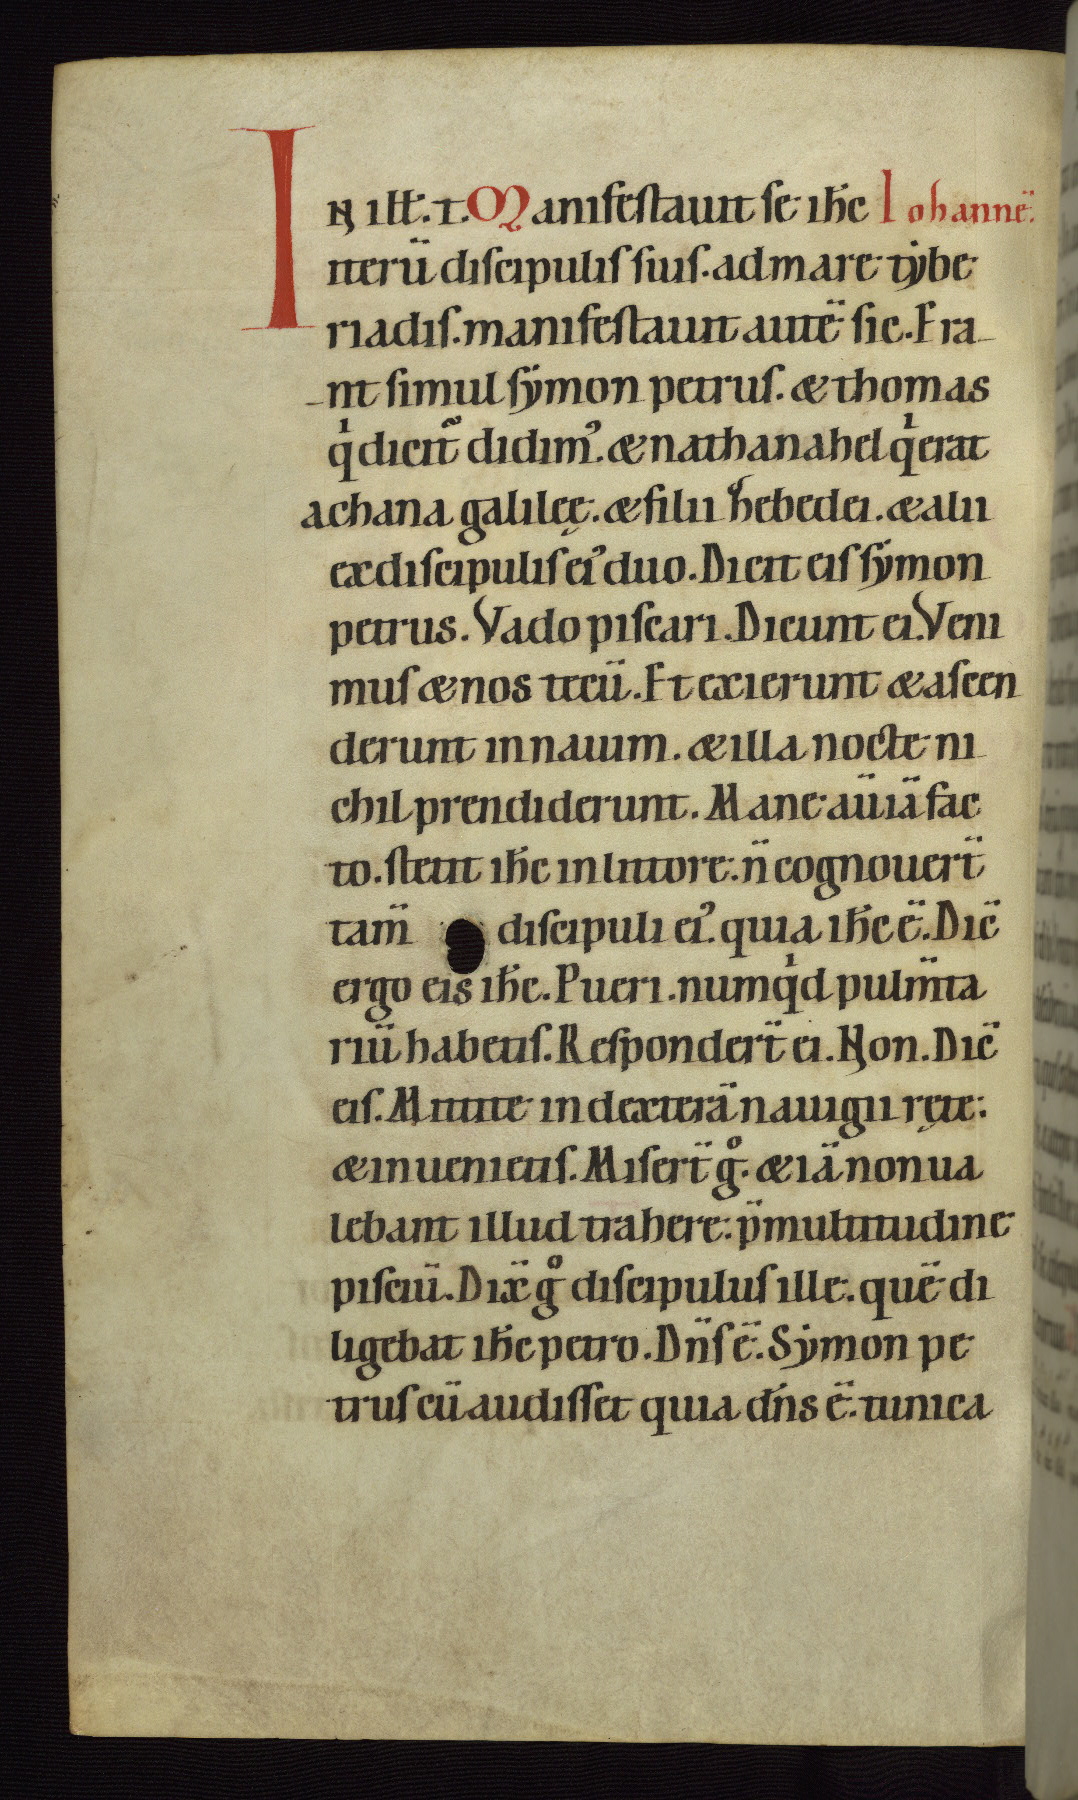 IN ill̅. t. Manifestauit se ih̅c Iohanne̅.
iteru̅ discipulis suis. ad mare tẏbe
riadis. manifestauit aute̅ sic. Era
nt simul sẏmon petrus. & thomas
qⁱ dicit᷑ didimꝰ. & nathanahel qⁱ erat
achana galileę. & filii hͦebedei. & alii
ex discipulis eiꝰ duo. Dicit eis sẏmon
petrus. Vado piscari. Dicunt ei. Veni
mus & nos tecu̅. Et exierunt & ascen
derunt in nauim. & illa nocte ni
chil prendiderunt. Mane au̅ ia̅ fac
to. stetit ih̅c in littore. n̅ cognouer̅t
tam̅ discipuli eiꝰ. quia ih̅c e̅. Dic̅
ergo eis ih̅c. Pueri. numqⁱd pulm̅ta
riu̅ habetis. Responder̅t ei. Non. Dic̅
eis. Mittite in dextera̅ nauigii ręte:
& inuenietis. Miser̅t gͦ. & ia̅ non ua
lebant illud trahere: p̅ multitudine
pisciu̅. Dix̅ gͦ discipulus ille. que̅ di
ligebat ih̅c petro. Dn̅s e̅. Sẏmon pe
trus cu̅ audisset quia dn̅s e̅. tunica